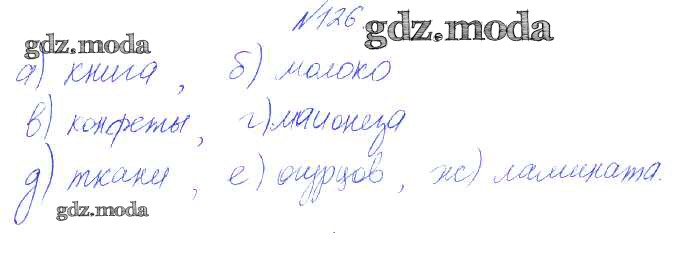 №126.
gdz.moda
gdz.moda
а) книга, б) молоко
в) конфеты, г) майонеза
д) ткани, е) огурцов, ж) ламината.
gdz.moda